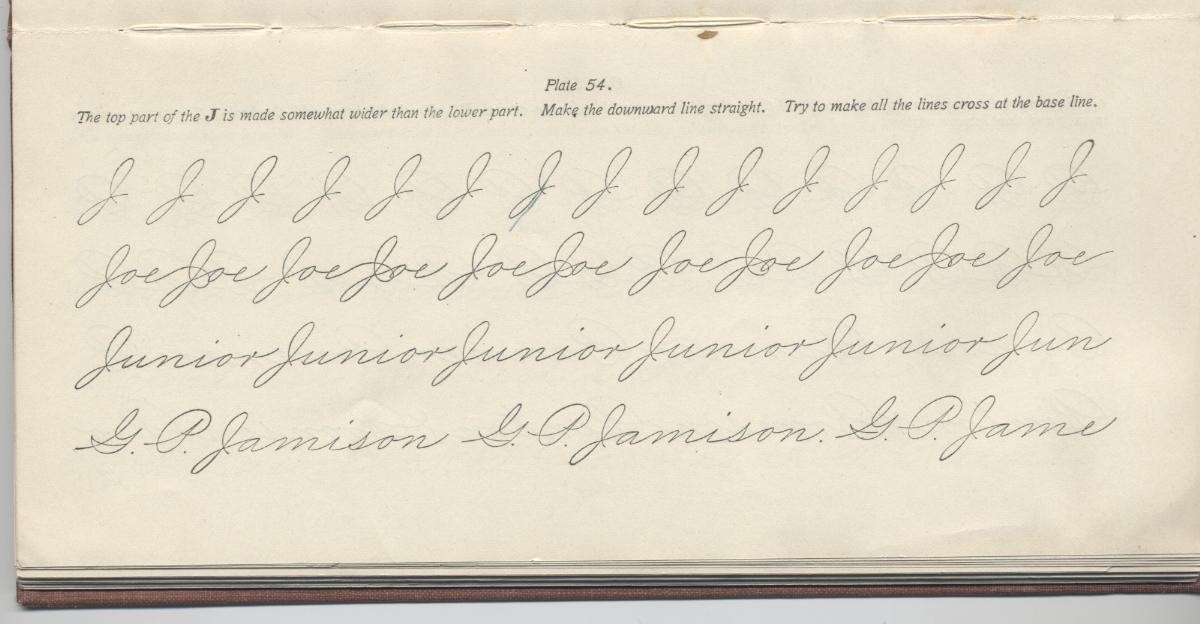 Plate 54.
The top part of the J is made somewhat wider than the lower part. Make the downward line straight. Try to make all the lines cross at the base line.
J J J J J J J J J J J J J J J
Joe Joe Joe Joe Joe Joe Joe Joe Joe Joe Joe
Junior Junior Junior Junior Junior Jun
G. P. Jamison G. P. Jamison. G. P. Jame